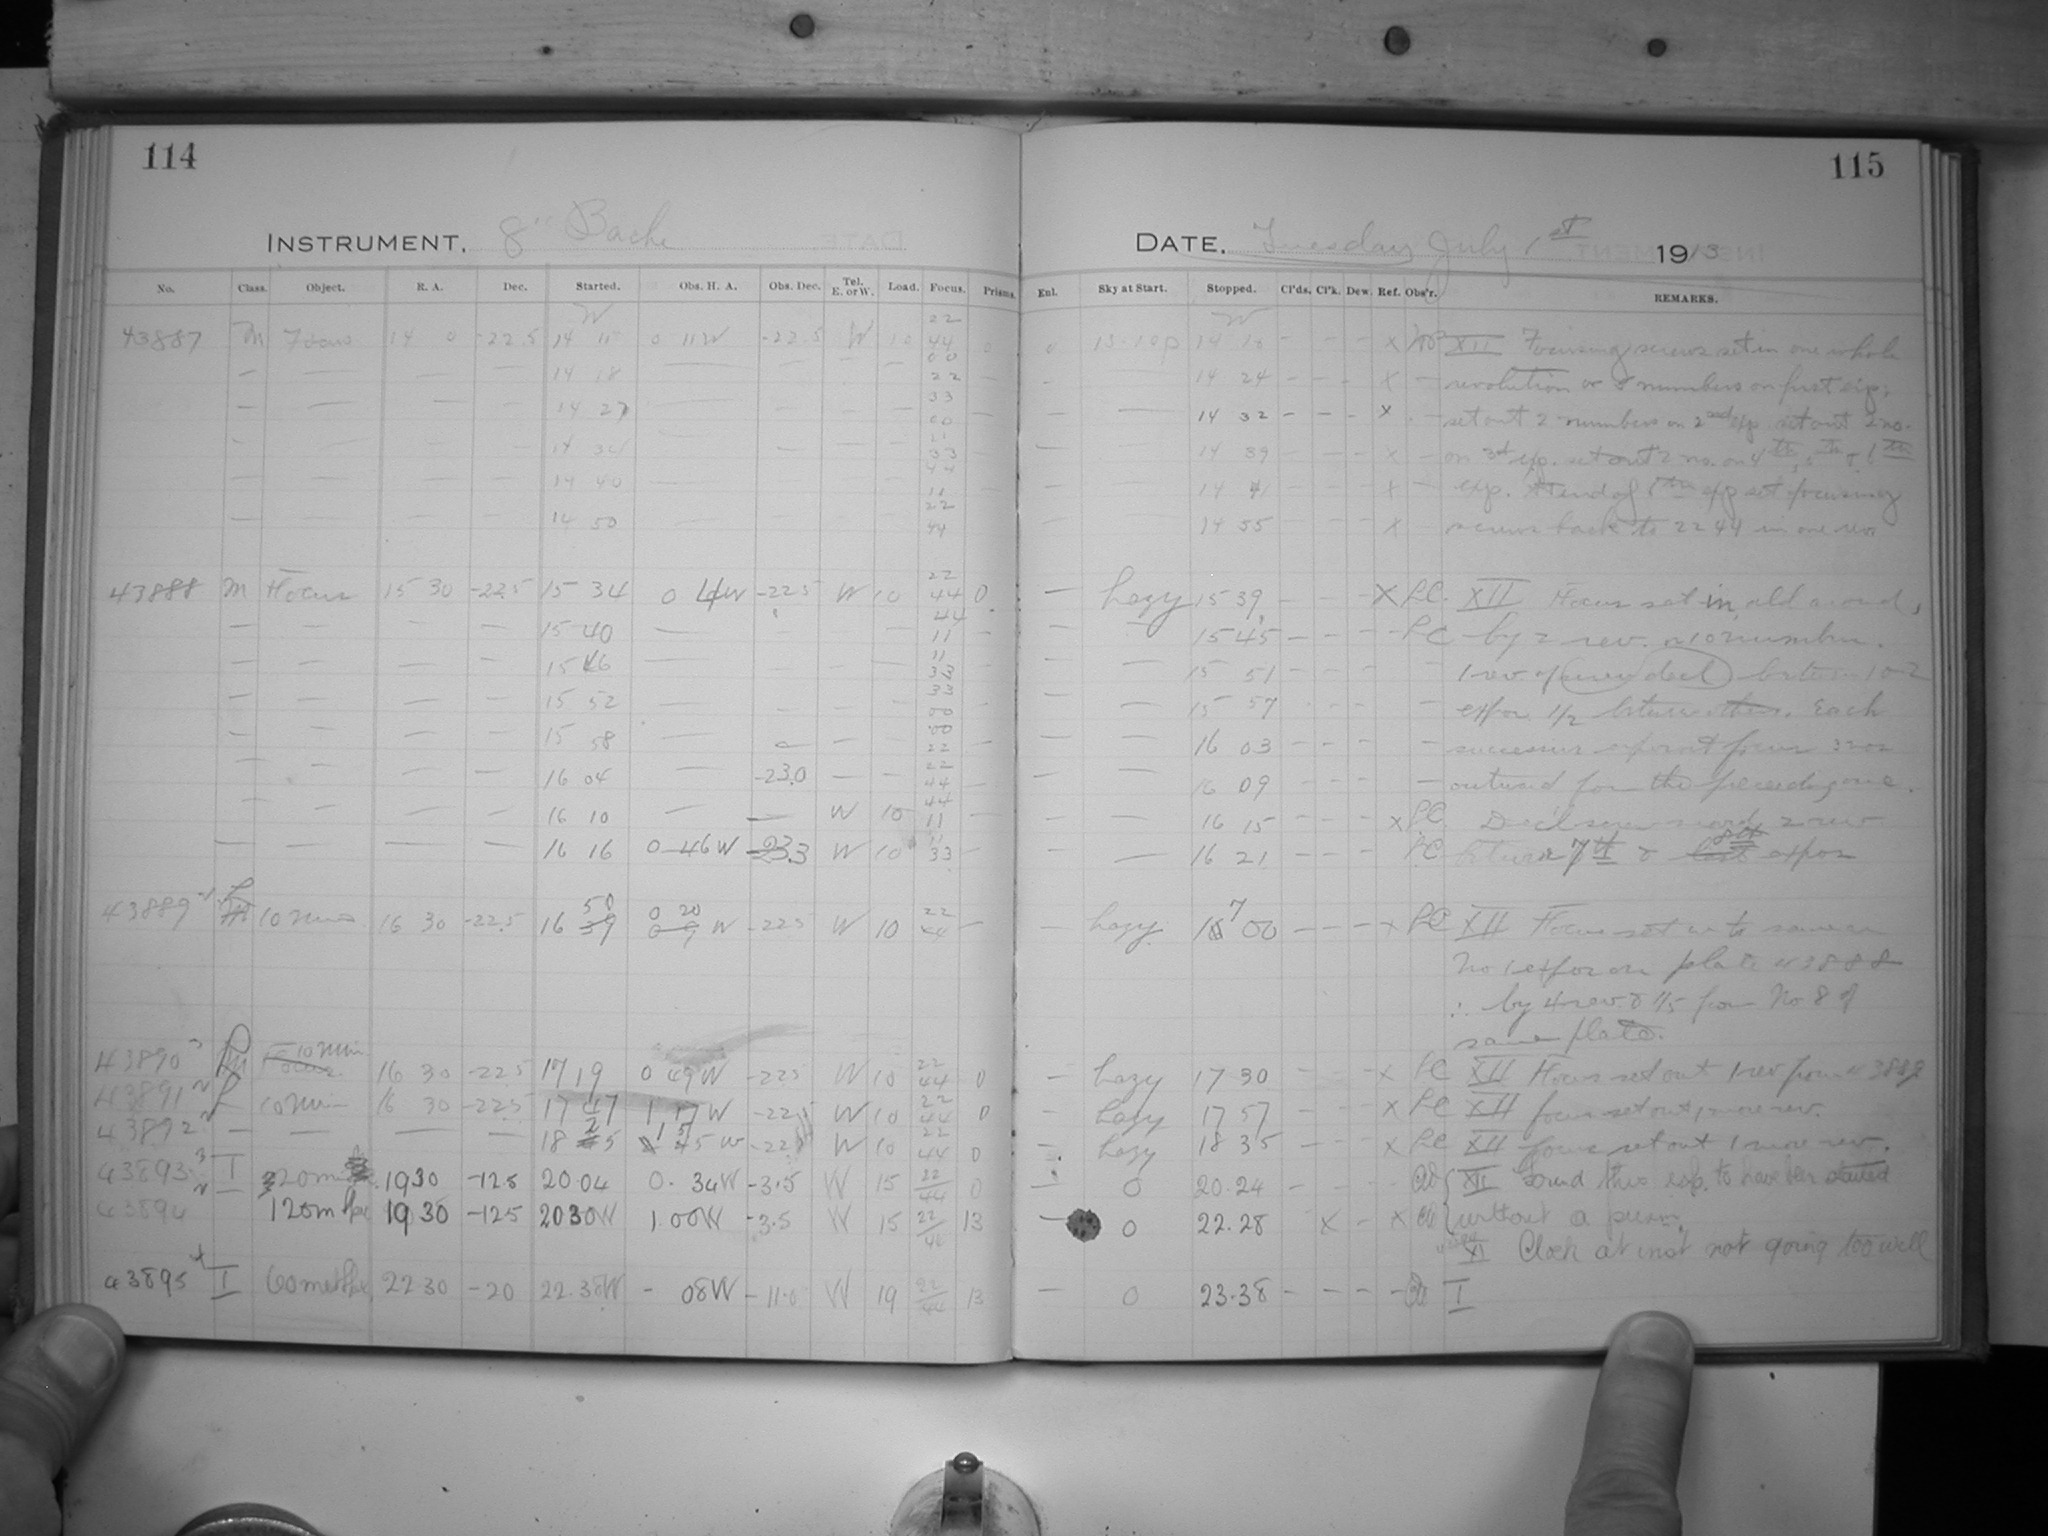 114
115
INSTRUMENT. 8" Bache
DATE. Tuesday July 1st 1913
No. Class. Object. R. A. Dec. Started. Obs. H. A. Obs. Dec. Tel. E. or W. Load. Focus. Prisms. Enl. Sky at Start. Stopped. Cl'ds. Cl'k. Dew. Ref. Obs'r. REMARKS.
43887 M Focus 14 0 -22.5 W 14 11 0 11W -22.5 W 10 22 44 0 0 W 14 16 - - - x XII Focusing screws set in one whole
14 18 00 22 14 24 - - - x revolution or 5 numbers on first exp,
14 27 33 00 14 32 - - - x set out 2 numbers on 2nd exp. set out 2 no.
14 34 11 33 14 39 - - - x on 3rd exp. set out 2 no. on 4th, 5th & 6th
14 40 44 11 14 41 - - - x exp. At end of 6th exp set focusing
14 50 22 44 14 55 - - - x screws back to 22 44 in one rev
43888 M Focus 15 30 -22.5 15 34 0 4W -22.5 W 10 22 44 0 - hazy 15 39 - - - X LC. XII Focus set in all around,
15 40 44 11 15 45 - - - - LC by 2 rev. or 10 number.
15 46 11 33 15 51 - - - 1 rev of decl between 1 & 2
15 52 33 00 15 57 - - - expos. 1/2 between others. Each
15 58 00 22 16 03 - - - successive expos at focus
16 04 -23.0 22 44 16 09 - outward from the preceding one.
16 10 W 10 44 11 16 15 x LC. Decl screw moved 2 rev
16 16 0 46 W -23.3 W 10 11 33 16 21 LC between 7th & last 8th expos
43889 M 10 min 16 30 -22.5 16 39 50 0 9 20 W -22.5 W 10 22 44 - - hazy 17 00 - - - x LC XII Focus set in to same as
No 1 expos on plate 43888
∴ by 4 rev & 1/5 from No 8 of
same plate.
43890 M Focus 10 min 16 30 -22.5 17 19 0 49W -22.5 W 10 22 44 0 - hazy 17 30 - - - x LC XII Focus set out 1 rev from 43889
43891 10 min 16 30 -22.5 17 47 1 17W -22.5 W 10 22 44 0 - hazy 17 57 - - - x LC XII focus set out 1 more rev.
43892 - - - - 18 25 1 55 W -22.5 W 10 22 44 0 - hazy 18 35 - - - x LC XII focus set out 1 more rev.
43893 I 20m 19 30 -12.5 20.04 0. 34W -3.5 W 15 22/44 0 - 0 20.24 - - - - XII Found this exp. to have been started
43894 - 120m Spe 19 30 -12.5 20 30W 1.00W -3.5 W 15 22/44 13 - 0 22.28 x - x without a prism.
43894 XI Clock at inst not going too well
43895 I 60m Spe 22 30 -20 22.38W - 08W -11.0 W 19 22/44 13 - 0 23.38 - - - - I